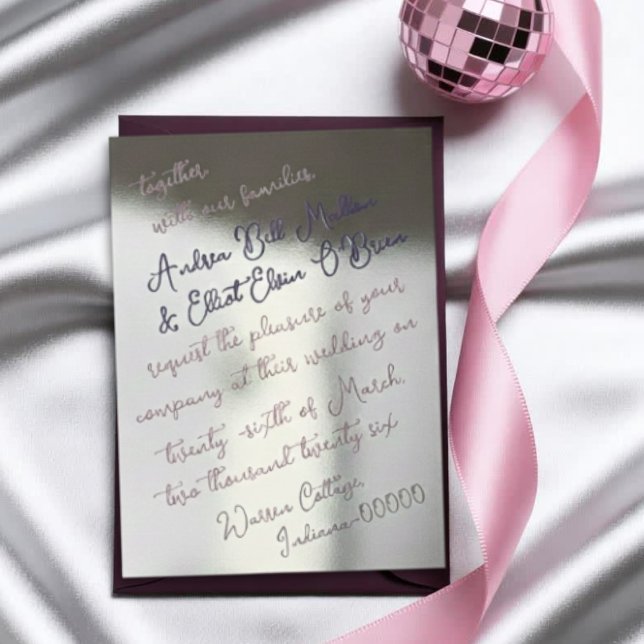 together,
with our families,
Andrea Bell Malson
& Elliot Elvin O'Brien
request the pleasure of your
company at their wedding on
twenty-sixth of March,
two thousand twenty six
Warren Cottage,
Indiana-00000